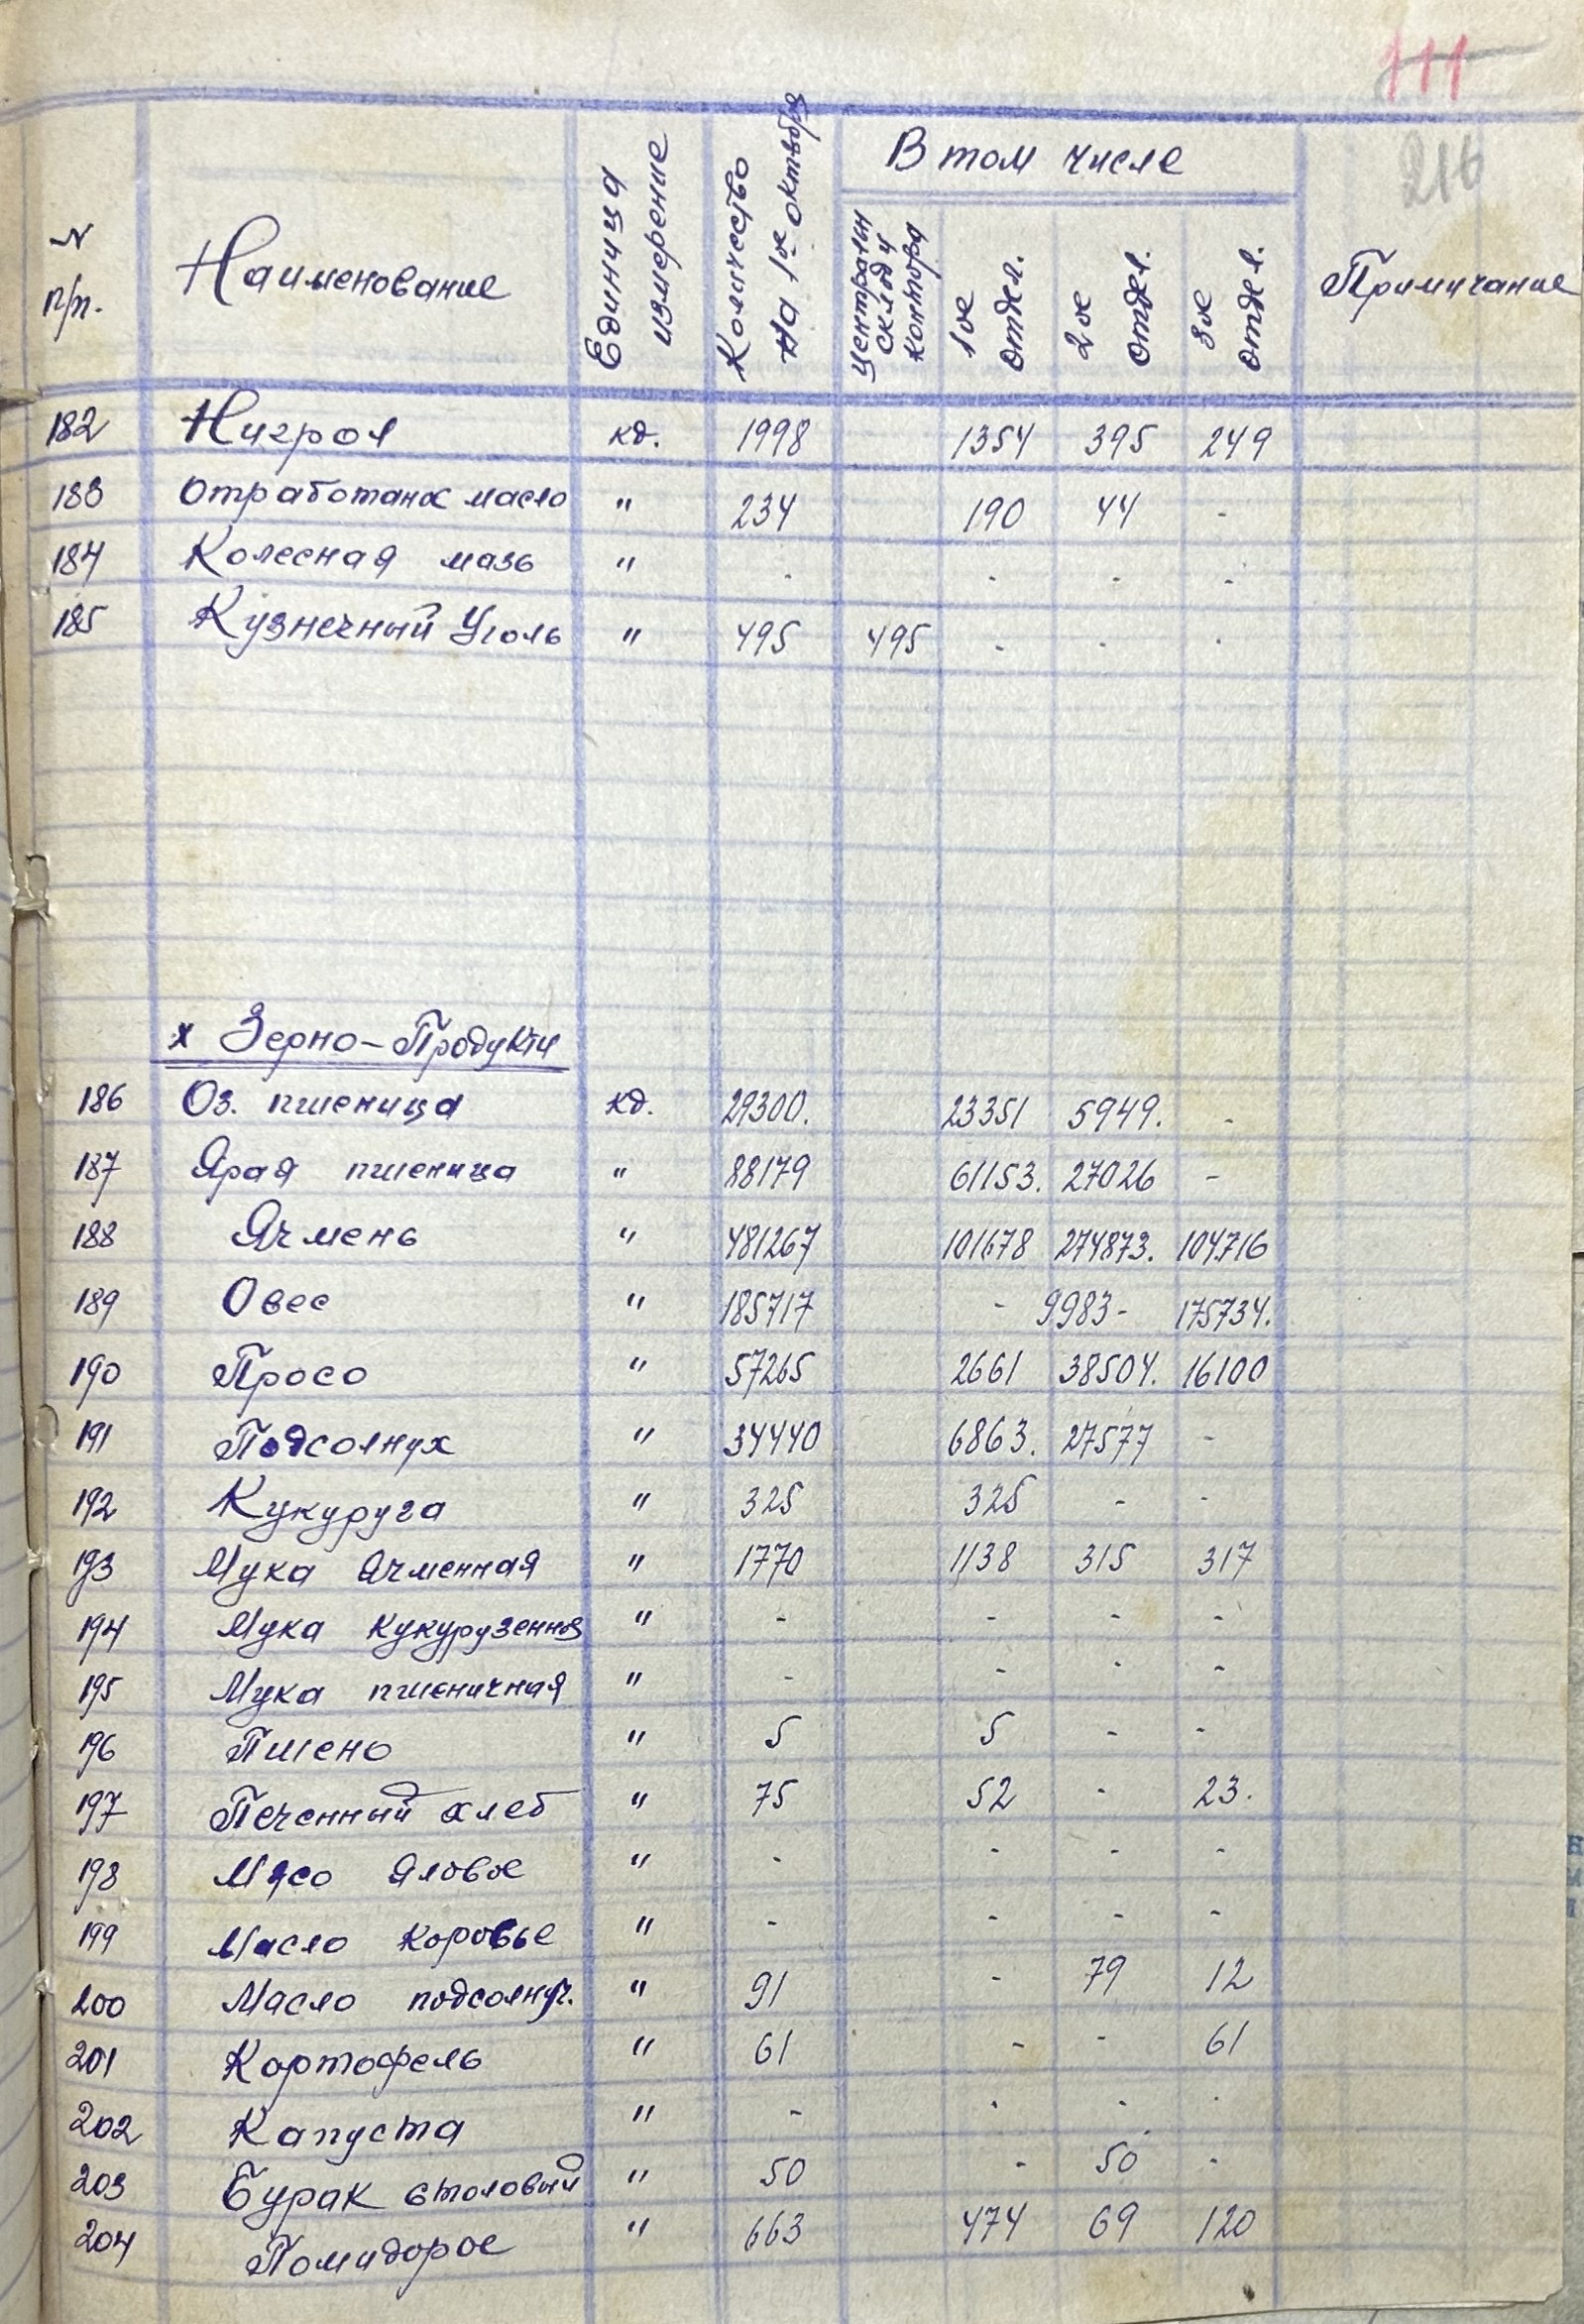 111
216
N п/п. Наименование Единица измерение Количество на 1ое октября В том числе Примичание
Централн склад и контора 1ое отдел. 2ое отдел. 3ое отдел.
182 Нигрол кд. 1998 1354 395 249
183 Отработаное масло " 234 190 44 -
184 Колесная мазь " - - - -
185 Кузнечный Уголь " 495 495 - - -
x Зерно-Продукти
186 Оз. пшеница кд. 29300. 23351 5949. -
187 Ярая пшеница " 88179 61153. 27026 -
188 Ячмень " 481267 101678 274873. 104716
189 Овес " 185717 - 9983- 175734.
190 Просо " 57265 2661 38504. 16100
191 Подсолнух " 34440 6863. 27577 -
192 Кукуруга " 325 325 - -
193 Мука Ячменная " 1770 1138 315 317
194 Мука кукурузенная " - - - -
195 Мука пшеничная " - - - -
196 Пшено " 5 5 - -
197 Печенный хлеб " 75 52 - 23.
198 Мясо яловое " - - - -
199 Масло коровье " - - - -
200 Масло подсолнуч. " 91 - 79 12
201 Кортофель " 61 - - 61
202 Капуста " - - - -
203 Бурак столовый " 50 - 50 -
204 Помидорое " 663 474 69 120